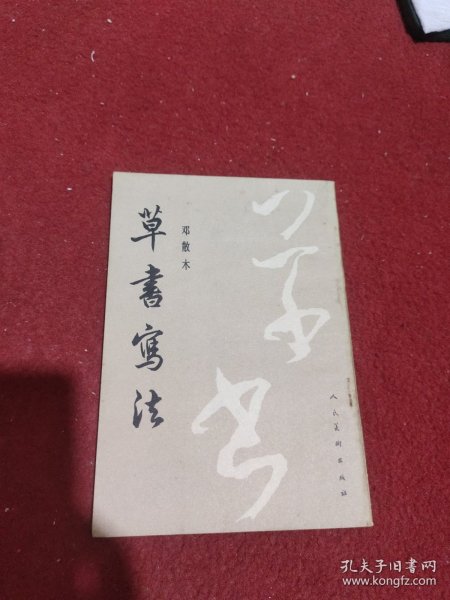 草書寫法
邓散木
草书
人民美術出版社
孔夫子旧书网
www.kongfz.com